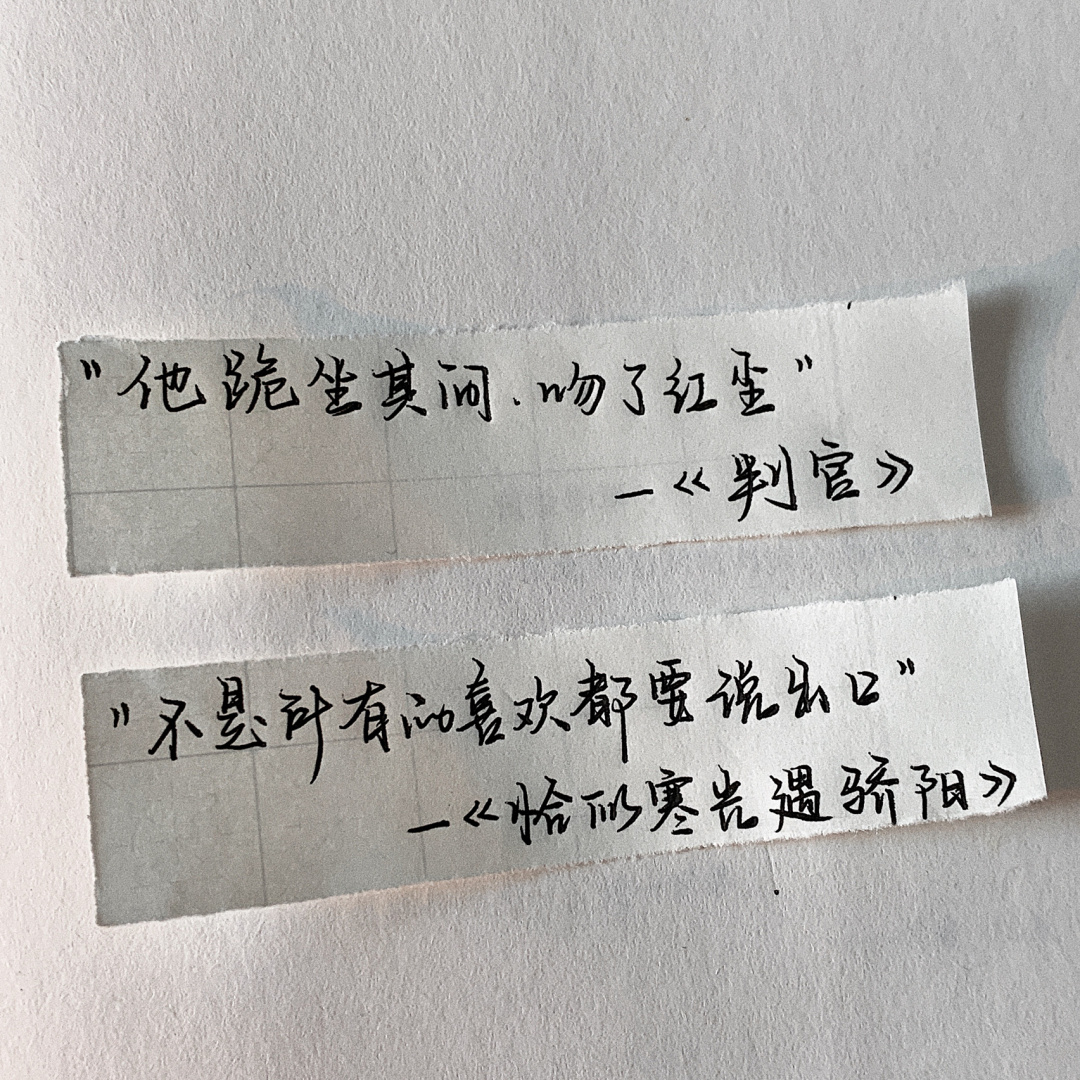 "他跪坐其间.吻了红尘"
—《判官》
"不是所有的喜欢都要说出口"
—《恰似寒光遇骄阳》